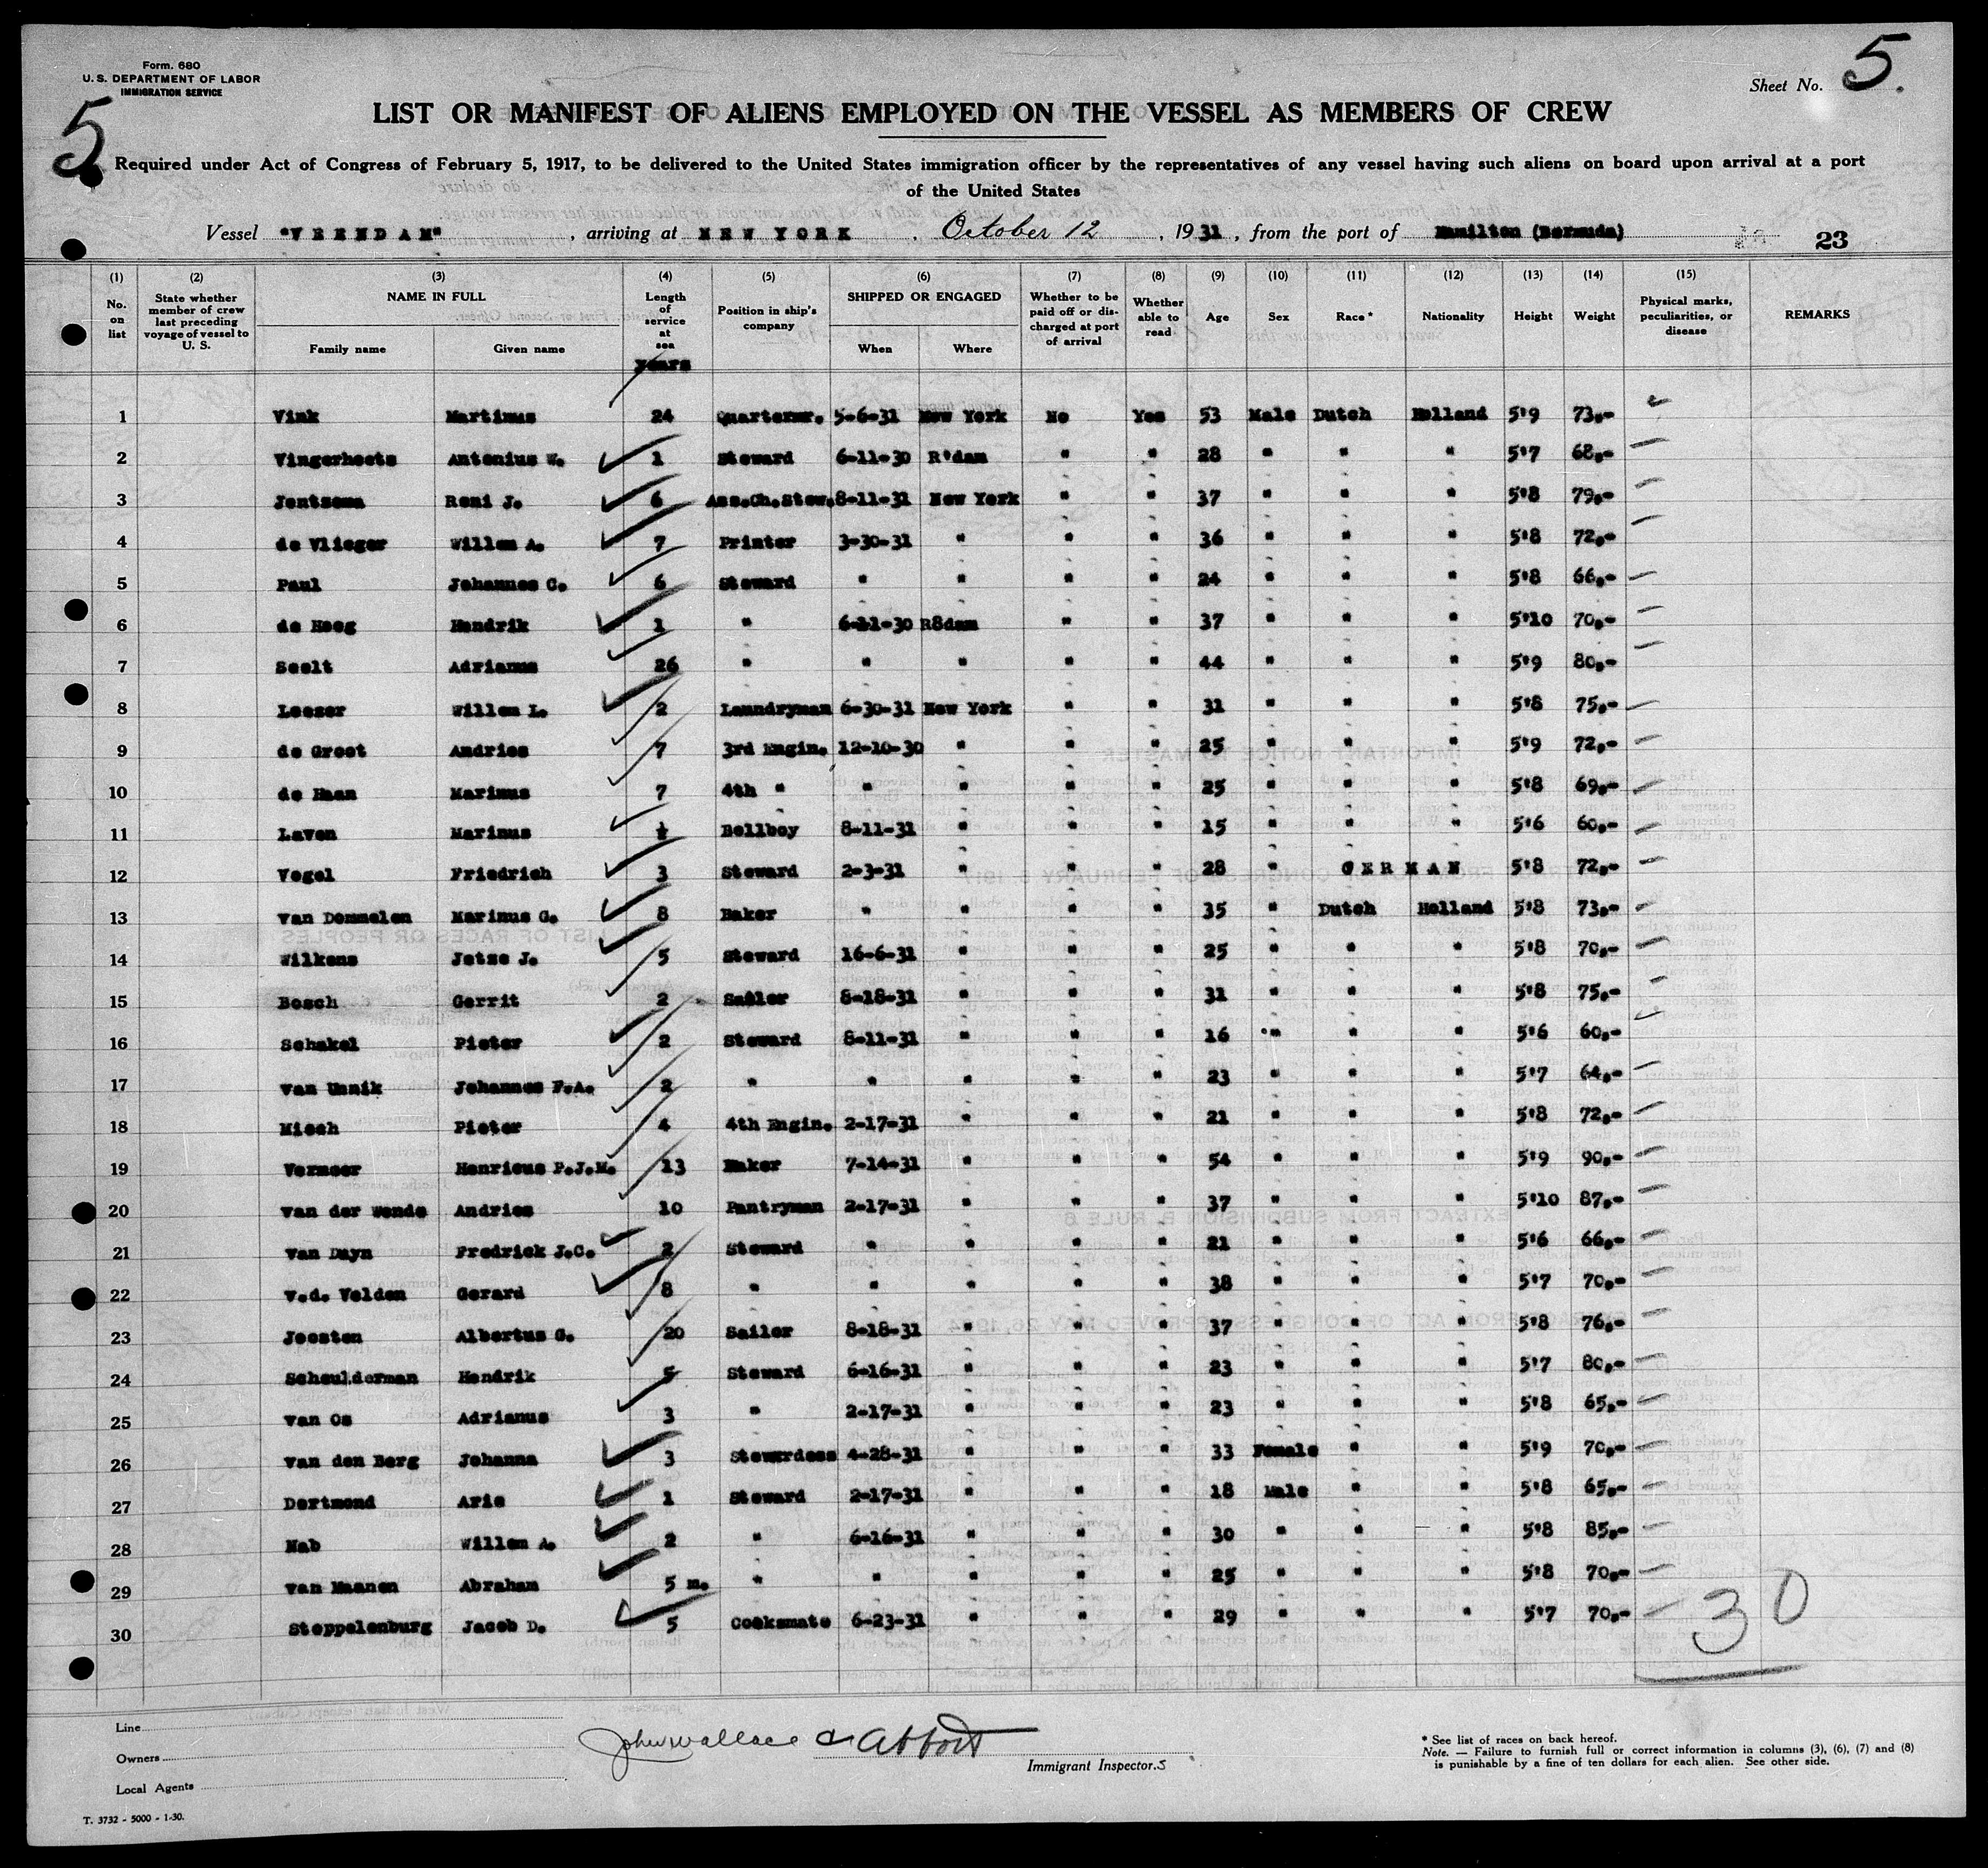 Form. 680
U. S. DEPARTMENT OF LABOR
IMMIGRATION SERVICE
5
Sheet No. 5.
LIST OR MANIFEST OF ALIENS EMPLOYED ON THE VESSEL AS MEMBERS OF CREW
Required under Act of Congress of February 5, 1917, to be delivered to the United States immigration officer by the representatives of any vessel having such aliens on board upon arrival at a port
of the United States
Vessel "VEENDAM", arriving at NEW YORK, October 12, 1931, from the port of Hamilton (Bermuda) 23
(1) No. on list
(2) State whether member of crew last preceding voyage of vessel to U. S.
(3) NAME IN FULL Family name Given name
(4) Length of service at sea years
(5) Position in ship's company
(6) SHIPPED OR ENGAGED When Where
(7) Whether to be paid off or discharged at port of arrival
(8) Whether able to read
(9) Age
(10) Sex
(11) Race*
(12) Nationality
(13) Height
(14) Weight
(15) Physical marks, peculiarities, or disease
REMARKS
1 Vink Martinus 24 Quarterm. 5-6-31 New York No Yes 53 Male Dutch Holland 5'9 73,-
2 Vingerhoets Antonius W. 1 Steward 6-11-30 R'dam " " 28 " " " 5'7 68,-
3 Jentsema Reni J. 6 Ass.Ch.Stew. 8-11-31 New York " " 37 " " " 5'8 79,-
4 de Vlieger Willem A. 7 Printer 3-30-31 " " " 36 " " " 5'8 72,-
5 Paul Johannes C. 6 Steward " " " " 24 " " " 5'8 66,-
6 de Hoog Hendrik 1 " 6-11-30 R8dam " " 37 " " " 5'10 70,-
7 Seelt Adrianus 26 " " " " " 44 " " " 5'9 80,-
8 Leeser Willem L. 2 Laundryman 6-30-31 New York " " 31 " " " 5'8 75,-
9 de Groot Andries 7 3rd Engin. 12-10-30 " " " 25 " " " 5'9 72,-
10 de Haan Marinus 7 4th " " " " " 25 " " " 5'8 69,-
11 Laven Marinus ½ Bellboy 8-11-31 " " " 15 " " " 5'6 60,-
12 Vogel Friedrich 3 Steward 2-3-31 " " " 28 " GERMAN 5'8 72,-
13 van Dommelen Marinus G. 8 Baker " " " " 35 " Dutch Holland 5'8 73,-
14 Wilkens Jetze J. 5 Steward 16-6-31 " " " 25 " " " 5'8 70,-
15 Bosch Gerrit 2 Sailor 8-18-31 " " " 31 " " " 5'8 75,-
16 Schakel Pieter 2 Steward 8-11-31 " " " 16 " " " 5'6 60,-
17 van Unnik Johannes F.A. 2 " " " " " 23 " " " 5'7 64,-
18 Misch Pieter 4 4th Engin. 2-17-31 " " " 21 " " " 5'8 72,-
19 Vermeer Henricus P.J.M. 13 Baker 7-14-31 " " " 54 " " " 5'9 90,-
20 van der Wende Andries 10 Pantryman 2-17-31 " " " 37 " " " 5'10 87,-
21 van Duyn Fredrick J.C. 2 Steward " " " " 21 " " " 5'6 66,-
22 v.d. Velden Gerard 8 " " " " " 38 " " " 5'7 70,-
23 Joosten Albertus G. 20 Sailor 8-18-31 " " " 37 " " " 5'8 76,-
24 Scheulderman Hendrik 5 Steward 6-16-31 " " " 23 " " " 5'7 80,-
25 van Os Adrianus 3 " 2-17-31 " " " 23 " " " 5'8 65,-
26 van den Berg Johanna 3 Stewardess 4-28-31 " " " 33 Female " " 5'9 70,-
27 Dortmond Arie 1 Steward 2-17-31 " " " 18 Male " " 5'8 65,-
28 Nab Willem A. 2 " 6-16-31 " " " 30 " " " 5'8 85,-
29 van Maanen Abraham 5 m. " " " " " 25 " " " 5'8 70,-
30 Stoppelenburg Jacob D. 5 Cooksmate 6-23-31 " " " 29 " " " 5'7 70,-
30
Line
Owners
Local Agents
John Wallace & Abbott
Immigrant Inspector.s
* See list of races on back hereof.
Note. — Failure to furnish full or correct information in columns (3), (6), (7) and (8)
is punishable by a fine of ten dollars for each alien. See other side.
T. 3732 - 5000 - 1-30.